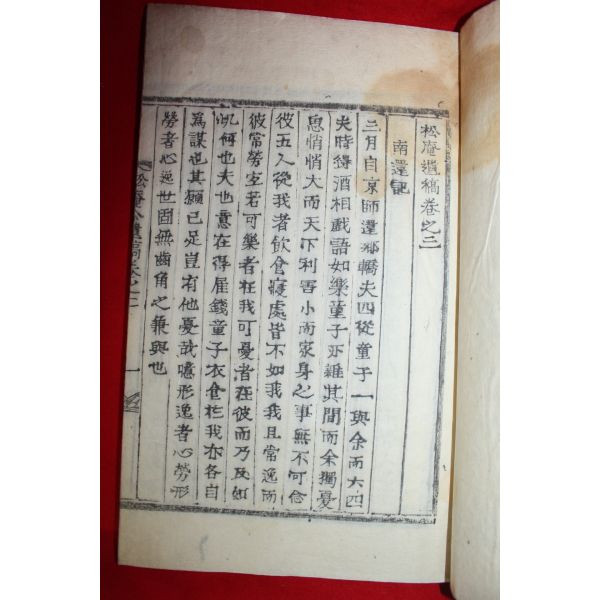 松庵遺稿卷之三
南還記
三月自京師還鄉轎夫四從童子一與余而六四
夫時得酒相戱語如樂童子亦雜其間而余獨憂
思悄悄大而天下利害小而家身之事無不可念
彼五人從我者飮食寢處皆不如我我且常逸而
彼常勞宜若可樂者在我可憂者在彼而乃反如
此何也夫也意在得雇錢童子衣食於我亦各自
爲謀也其願已足豈有他憂哉噫形逸者心勞形
勞者心逸世固無齒角之兼與也
松庵公遺稿卷之三
一